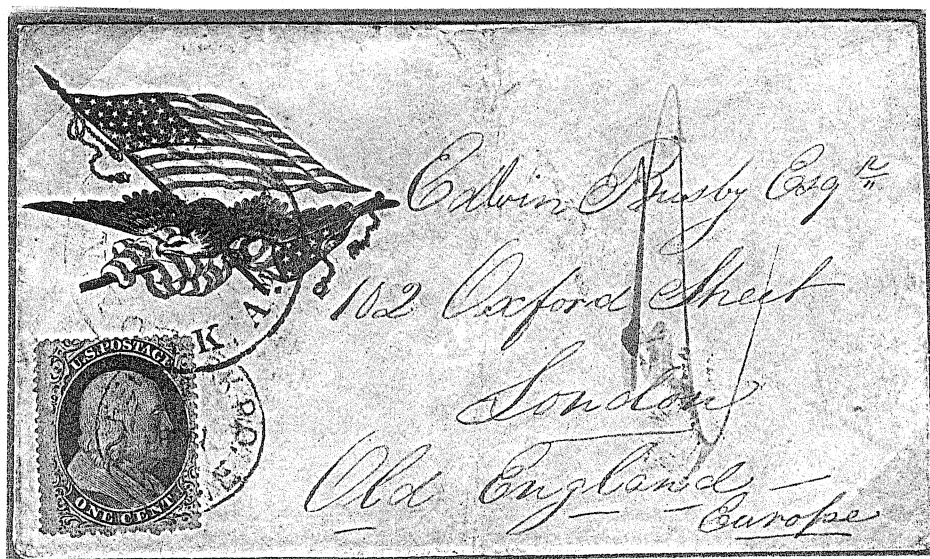 Edwin Busby Esqre
102 Oxford Street
London
Old England —
Europe
K A.
U.S. POSTAGE
ONE CENT